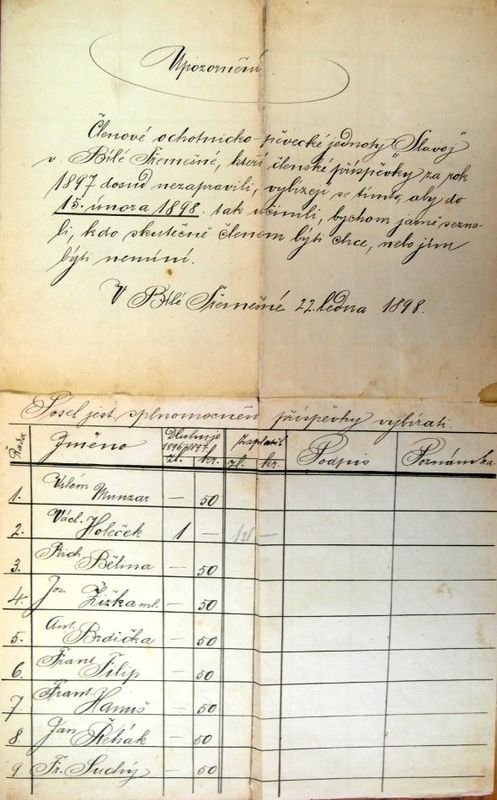 Upozornění
Členové ochotnicko-pěvecké jednoty "Slavoj"
v Bílé Třemešné, kteří členské příspěvky za rok
1897 dosud nezapravili, vybízejí se tímto, aby do
15. února 1898. tak učinili, bychom jasně sezna-
li, kdo skutečně členem býti chce, nebo jím
býti nemíní.
V Bílé Třemešné 22. ledna 1898.
Posel jest splnomocněn příspěvky vybírati.
Řada Jméno Dluhuje 1896/1897 zl. kr. Zaplatil zl. kr. Podpis Poznámka
1. Vilém Munzar — 50
2. Václ. Holeček 1 — —
3. Rich. Bělina — 50
4. Jos. Žižka ml. — 50
5. Ant. Brdička — 50
6. Frant. Filip — 50
7 Frant. Hanuš — 50
8 Jan Řehák — 50
9. Fr. Suchý — 50